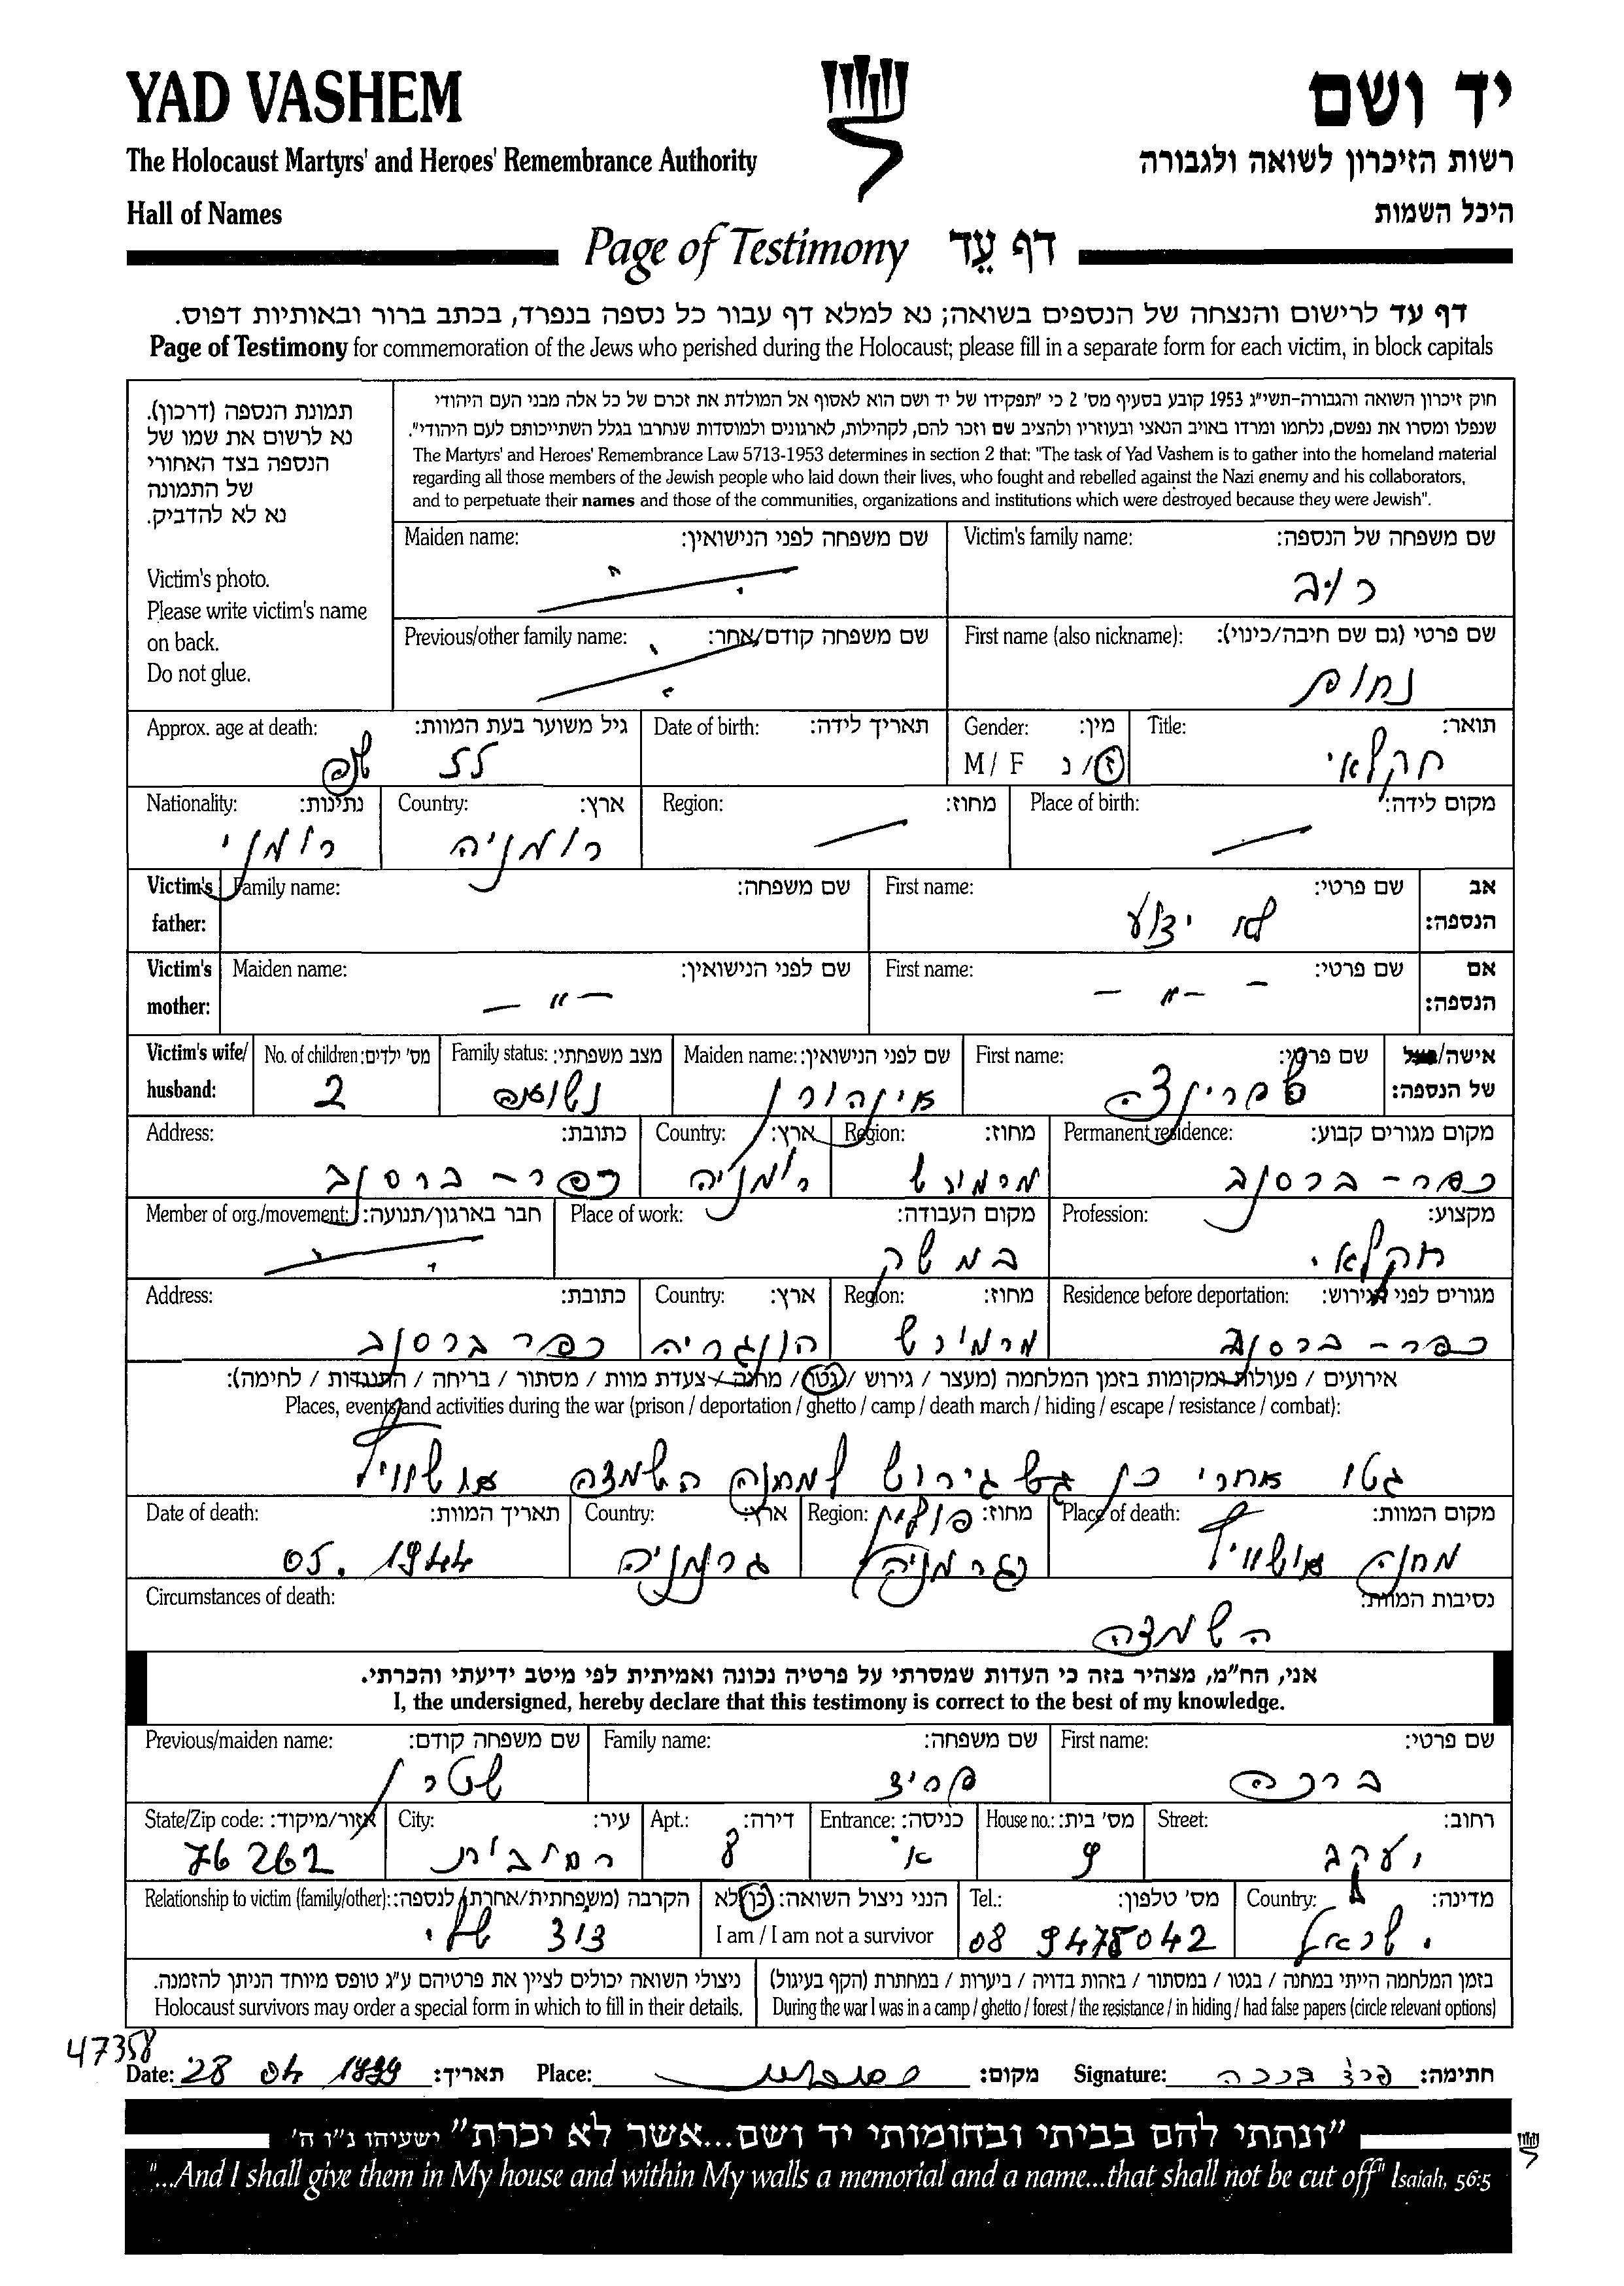 YAD VASHEM
יד ושם
The Holocaust Martyrs' and Heroes' Remembrance Authority
רשות הזיכרון לשואה ולגבורה
Hall of Names
היכל השמות
Page of Testimony דף עֵד
דף עד לרישום והנצחה של הנספים בשואה; נא למלא דף עבור כל נספה בנפרד, בכתב ברור ובאותיות דפוס.
Page of Testimony for commemoration of the Jews who perished during the Holocaust; please fill in a separate form for each victim, in block capitals
תמונת הנספה (דרכון).
נא לרשום את שמו של
הנספה בצד האחורי
של התמונה
נא לא להדביק.
Victim's photo.
Please write victim's name
on back.
Do not glue.
חוק זיכרון השואה והגבורה-תשי"ג 1953 קובע בסעיף מס' 2 כי "תפקידו של יד ושם הוא לאסוף אל המולדת את זכרם של כל אלה מבני העם היהודי
שנפלו ומסרו את נפשם, נלחמו ומרדו באויב הנאצי ובעוזריו ולהציב שם וזכר להם, לקהילות, לארגונים ולמוסדות שנחרבו בגלל השתייכותם לעם היהודי".
The Martyrs' and Heroes' Remembrance Law 5713-1953 determines in section 2 that: "The task of Yad Vashem is to gather into the homeland material
regarding all those members of the Jewish people who laid down their lives, who fought and rebelled against the Nazi enemy and his collaborators,
and to perpetuate their names and those of the communities, organizations and institutions which were destroyed because they were Jewish".
Victim's family name: שם משפחה של הנספה:
Maiden name: שם משפחה לפני הנישואין:
First name (also nickname): שם פרטי (גם שם חיבה/כינוי):
נחום
Previous/other family name: שם משפחה קודם/אחר:
Title: תואר:
חקלאי
Gender: מין:
M / F ז/נ
Date of birth: תאריך לידה:
Approx. age at death: גיל משוער בעת המוות:
55
Place of birth: מקום לידה:
Region: מחוז:
Country: ארץ:
רומניה
Nationality: נתינות:
רומני
Victim's father: אב הנספה:
First name: שם פרטי:
לא ידוע
Family name: שם משפחה:
Victim's mother: אם הנספה:
First name: שם פרטי:
- " -
Maiden name: שם לפני הנישואין:
- " -
Victim's wife/ husband: אישה/בעל של הנספה:
First name: שם פרטי:
Maiden name: שם לפני הנישואין:
איינהורן
Family status: מצב משפחתי:
No. of children: מס' ילדים:
2
Permanent residence: מקום מגורים קבוע:
כפר - ברסוב
Region: מחוז:
מרמורש
Country: ארץ:
רומניה
Address: כתובת:
כפר - ברסוב
Profession: מקצוע:
חקלאי
Place of work: מקום העבודה:
במשק
Member of org./movement: חבר בארגון/תנועה:
Residence before deportation: מגורים לפני הגירוש:
כפר - ברסוב
Region: מחוז:
מרמורש
Country: ארץ:
הונגריה
Address: כתובת:
כפר ברסוב
אירועים / פעולות ומקומות בזמן המלחמה (מעצר / גירוש / גטו / מחנה / צעדת מוות / מסתור / בריחה / התנגדות / לחימה):
Places, events and activities during the war (prison / deportation / ghetto / camp / death march / hiding / escape / resistance / combat):
גטו אחרי כן גירוש למחנה השמדה אושוויץ
Place of death: מקום המוות:
מחנה אושוויץ
Region: מחוז:
פולין
(גרמניה)
Country: ארץ:
גרמניה
Date of death: תאריך המוות:
05. 1944
Circumstances of death: נסיבות המוות:
השמדה
אני, הח"מ, מצהיר בזה כי העדות שמסרתי על פרטיה נכונה ואמיתית לפי מיטב ידיעתי והכרתי.
I, the undersigned, hereby declare that this testimony is correct to the best of my knowledge.
First name: שם פרטי:
ברכה
Family name: שם משפחה:
Previous/maiden name: שם משפחה קודם:
שטרן
Street: רחוב:
יעקב
House no.: מס' בית:
9
Entrance: כניסה:
א'
Apt.: דירה:
8
City: עיר:
רחובות
State/Zip code: אזור/מיקוד:
76262
Country: מדינה:
ישראל
Tel.: מס' טלפון:
08 9475042
הנני ניצול השואה: כן/לא
I am / I am not a survivor
Relationship to victim (family/other): הקרבה (משפחתית/אחרת) לנספה:
דוד שלי
בזמן המלחמה הייתי במחנה / בגטו / במסתור / בזהות בדויה / ביערות / במחתרת (הקף בעיגול)
During the war I was in a camp / ghetto / forest / the resistance / in hiding / had false papers (circle relevant options)
ניצולי השואה יכולים לציין את פרטיהם ע"ג טופס מיוחד הניתן להזמנה.
Holocaust survivors may order a special form in which to fill in their details.
47358
Date: 28 04 1999 תאריך: Place: מקום: Signature: ברכה חתימה:
"ונתתי להם בביתי ובחומותי יד ושם...אשר לא יכרת" ישעיהו נ"ו ה'
"...And I shall give them in My house and within My walls a memorial and a name...that shall not be cut off" Isaiah, 56:5